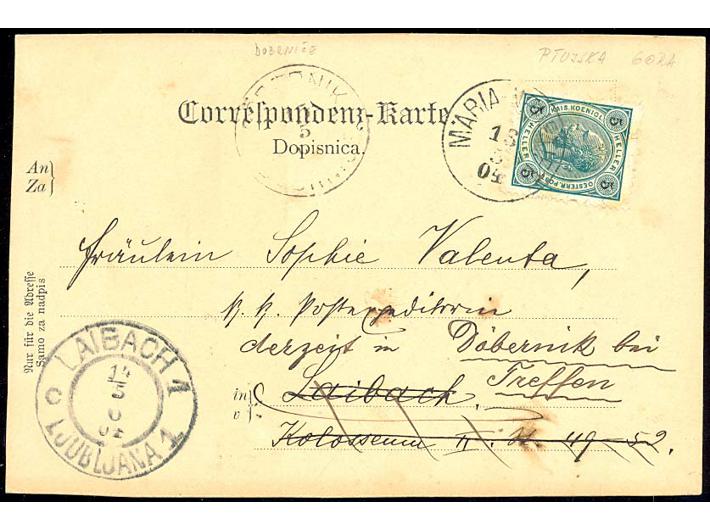 DOBERNIČE
PTUJSKA GORA
Correspondenz-Karte
Dopisnica.
An
Za
DÖBERNIK
5
MARIA
13
5
04
KAIS. KOENIGL.
5 HELLER 5 HELLER
OESTERR. POST
5 5
Fräulein Sophie Valenta,
k. k. Postexpeditorin
derzeit in Döbernik bei
Treffen
in
v
Laibach.
Kolosseum II. St. 49-52.
Nur für die Adresse
Samo za nadpis
LAIBACH 1
14
5
04
LJUBLJANA 1